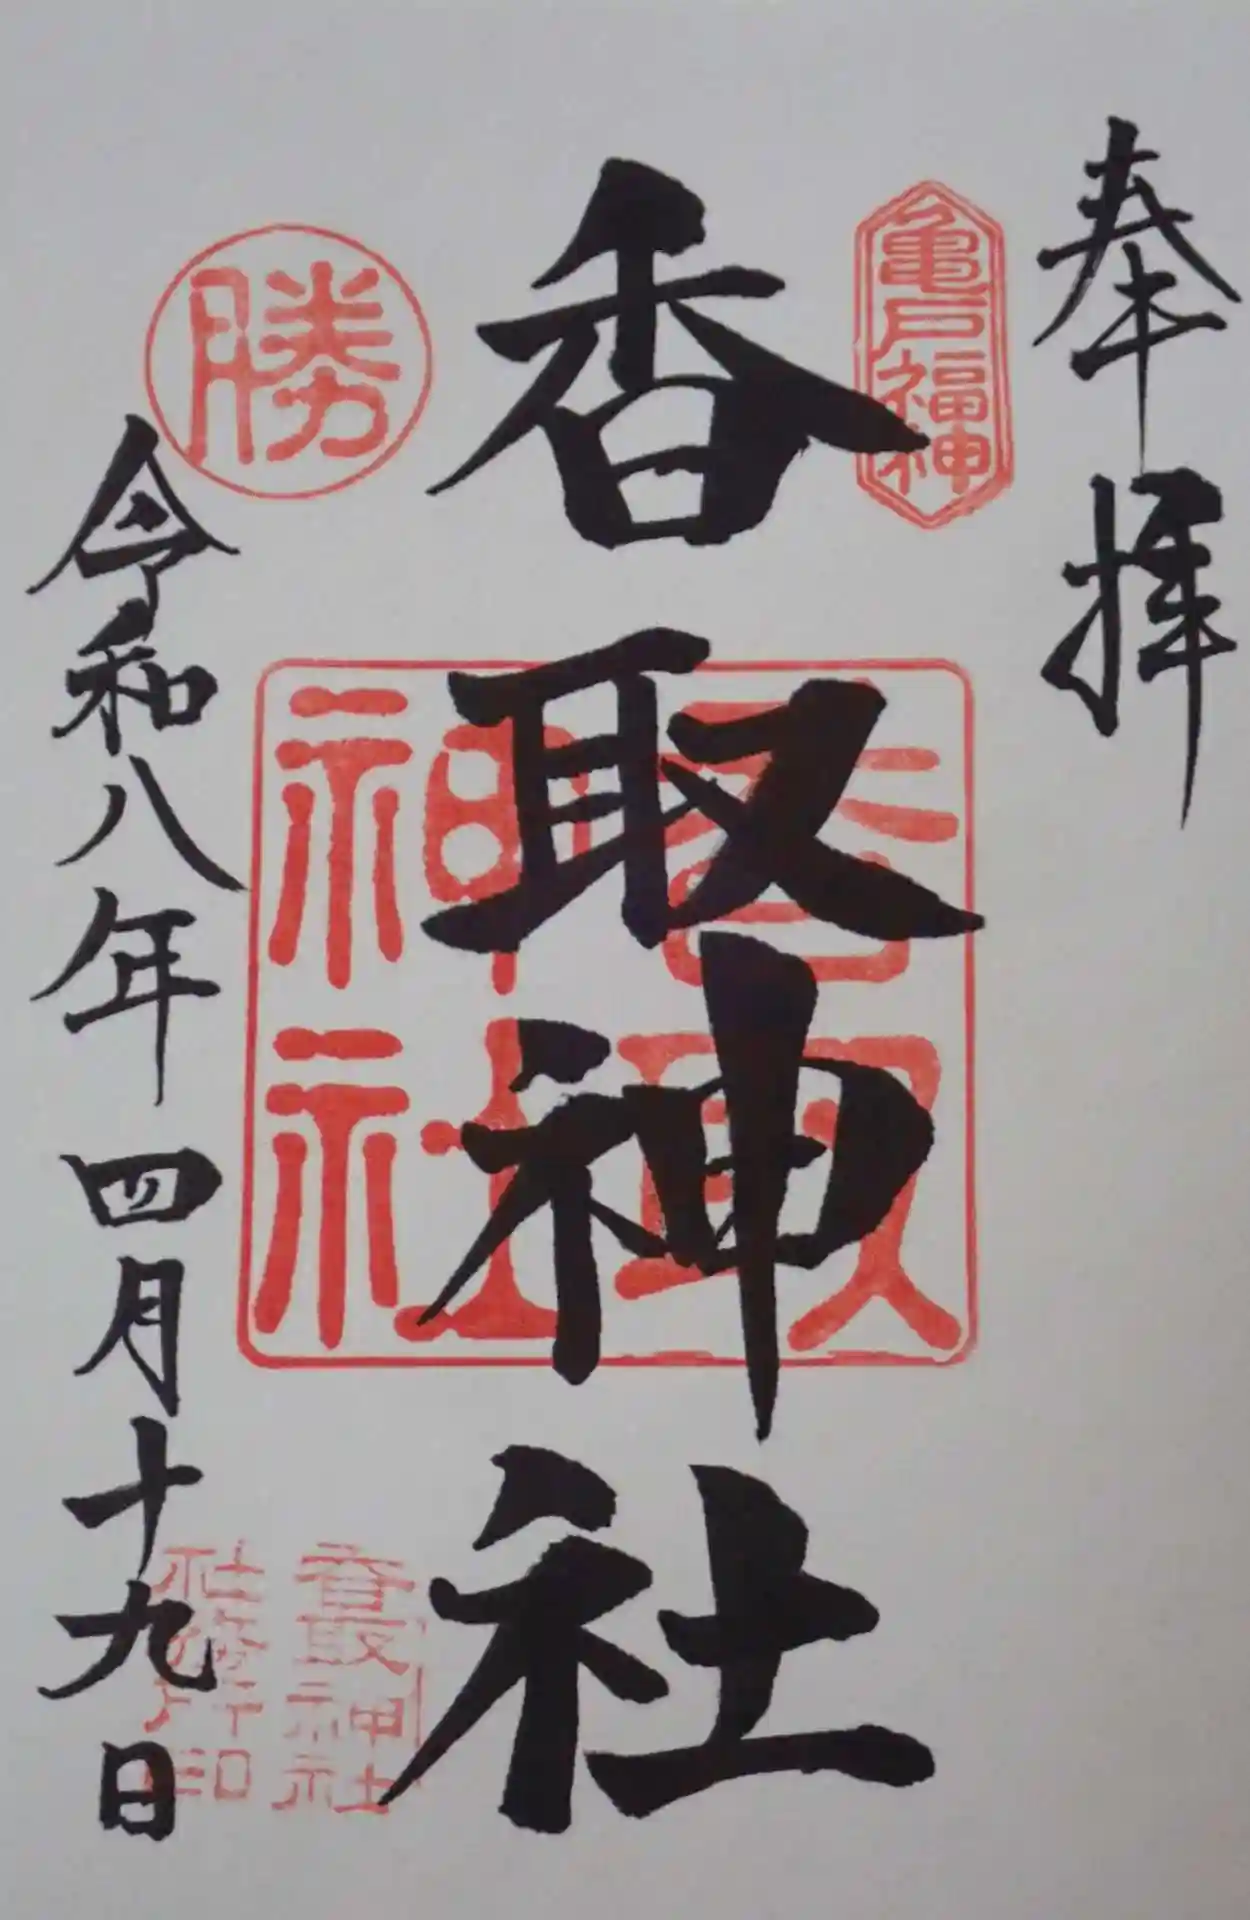 奉拝
亀戸福神
香取神社
香取神社
勝
令和八年四月十九日
香取神社
社務所印